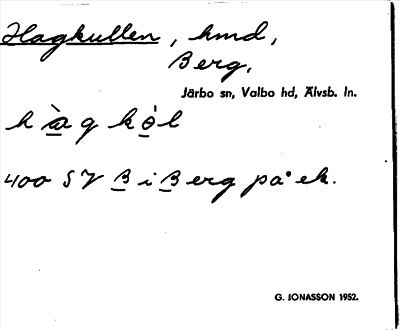 Hagkullen, hmd,
Berg,
Järbo sn, Valbo hd, Älvsb. ln.
hàgkòl
400 SV B i Berg på ek.
G. JONASSON 1952.